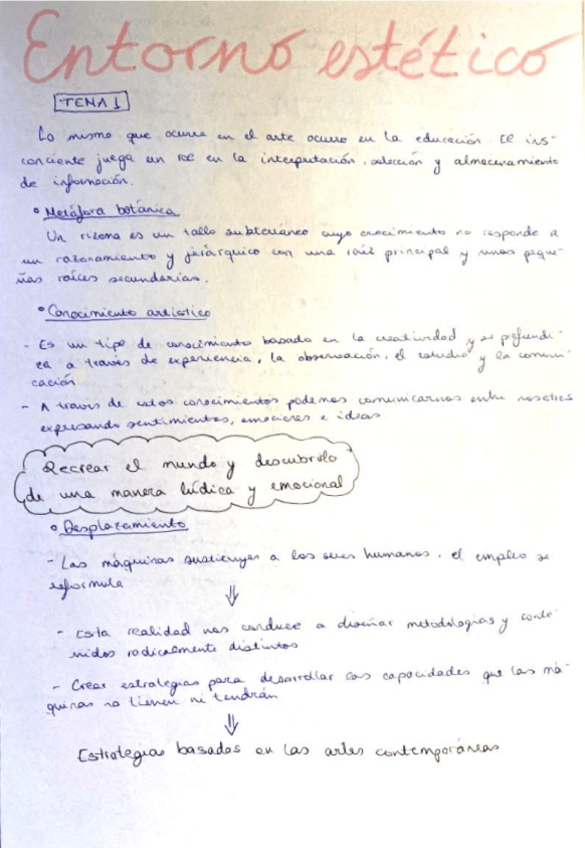 Entorno estético
TEMA 1
Lo mismo que ocurre en el arte ocurre en la educación. El ins-
conciente juega un rol en la interpretación, selección y almacenamiento
de información.
• Metáfora botánica
Un rizoma es un tallo subterráneo cuyo crecimiento no responde a
un razonamiento y jerárquico con una raíz principal y unas peque-
ñas raíces secundarias.
• Conocimiento artístico
- Es un tipo de conocimiento basado en la creatividad y se profundi-
za a través de experiencia, la observación, el estudio y la comuni-
cación
- A través de estos conocimientos podemos comunicarnos entre nosotros
expresando sentimientos, emociones e ideas.
Recrear el mundo y descubrirlo
de una manera lúdica y emocional
• Desplazamiento
- Las máquinas sustituyen a los seres humanos, el empleo se
reformula
⇓
- Esta realidad nos conduce a diseñar metodologías y conte-
nidos radicalmente distintos
- Crear estrategias para desarrollar las capacidades que las má-
quinas no tienen ni tendrán
⇓
Estrategias basadas en las artes contemporáneas